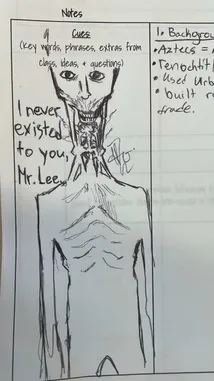 Notes
Cues:
(Key words, phrases, extras from
class, ideas, + questions)
I never
existed
to you,
Mr. Lee
1. Backgrou
• Aztecs =
• Tenochtitl
• Used urb
• built r
trade.